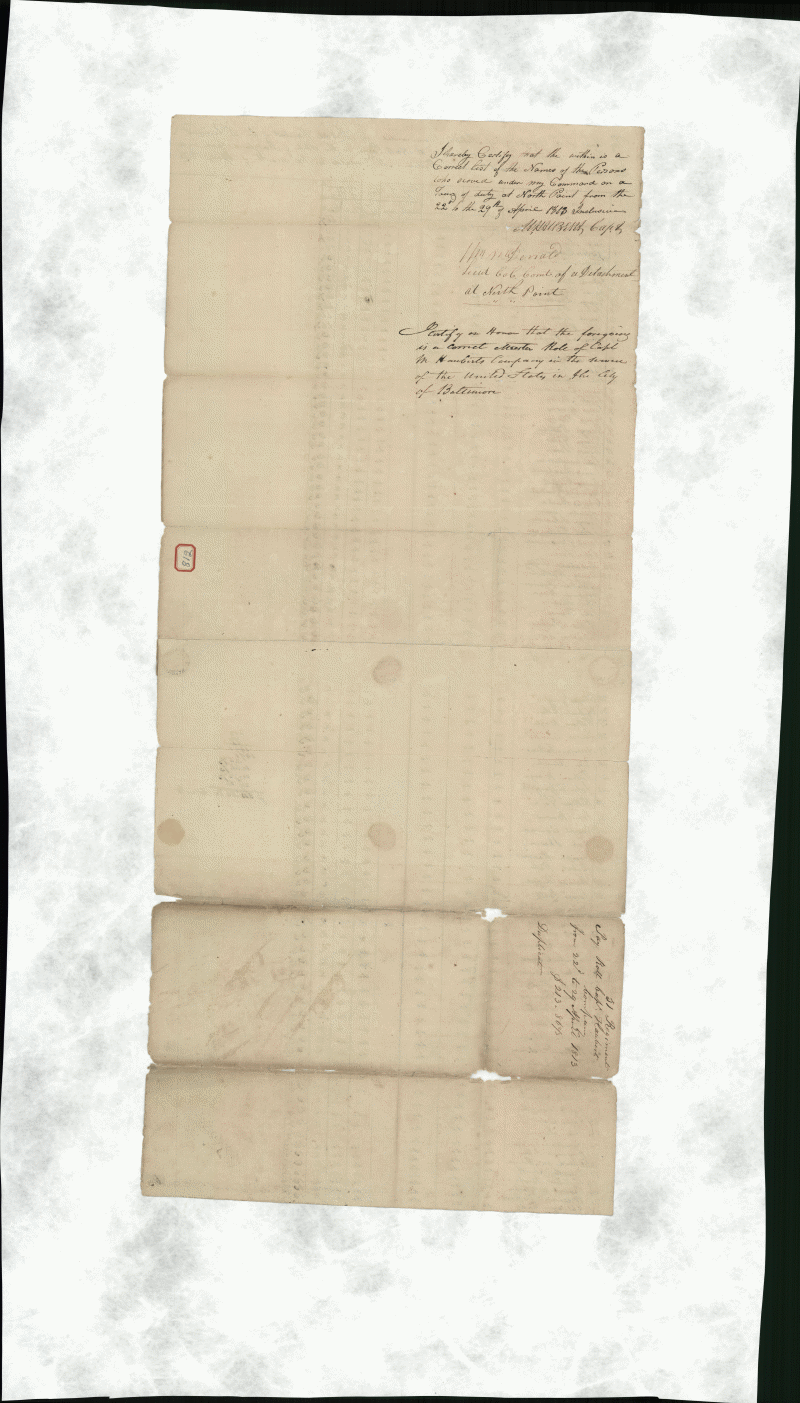 I hereby Certify that the within is a
Correct list of the Names of those Persons
who served under my Command on a
Tour of duty at North Point from the
22d to the 29th of April 1813 Inclusive
Capt,
Wm McDonald
Lieut Col. Comd of a Detachment
at North Point
I Certify on Honour that the foregoing
is a correct Muster Role of Capt
Company in the service
of the United States in the City
of Baltimore
812
51 Regiment
Pay Roll Capt
Company
from 22d to 29 April 1813
Duplicate